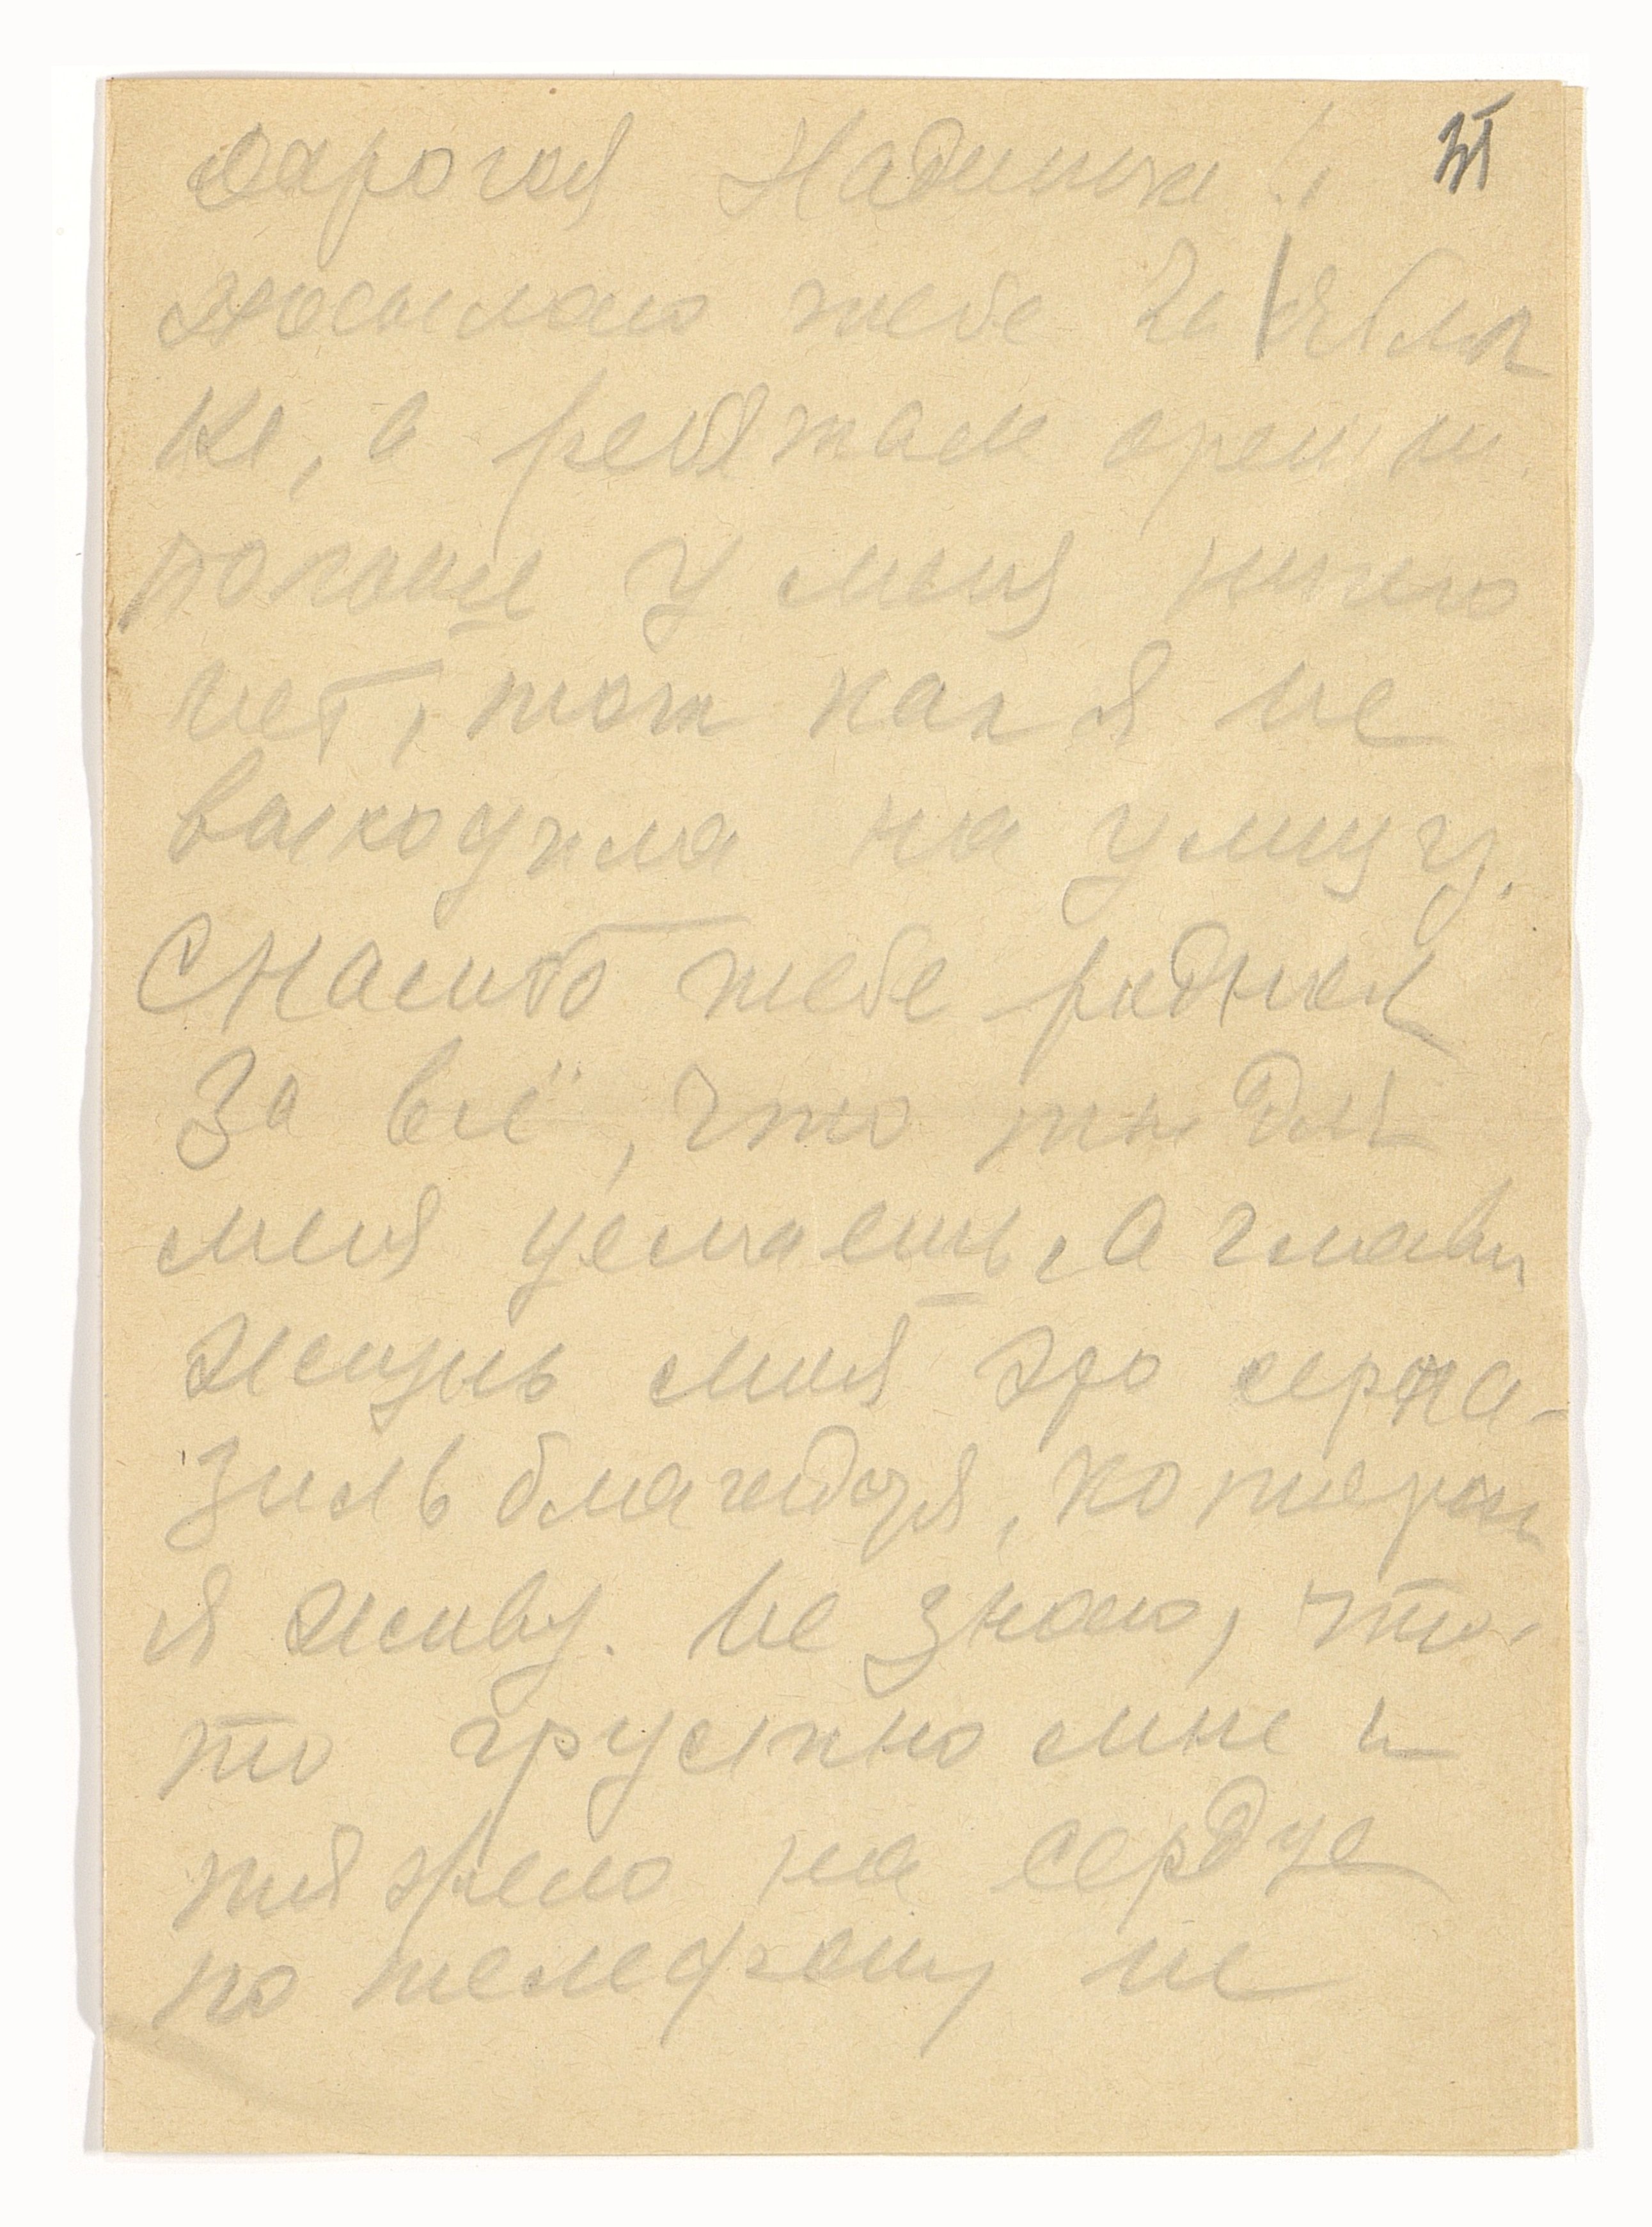 дарогая Надинька!
посылаю тебе 2 яблок
ке, а ребятам орешки.
полоше у меня ничего
нет, так как я не
выходила на улицу.
Спасибо тебе родная
За всё, что ты для
меня делаешь, а главн
жизнь моя это
благодаря, которым
я живу. Не знаю, что-
то грустно мне и
тяжело на сердце
по телефону не